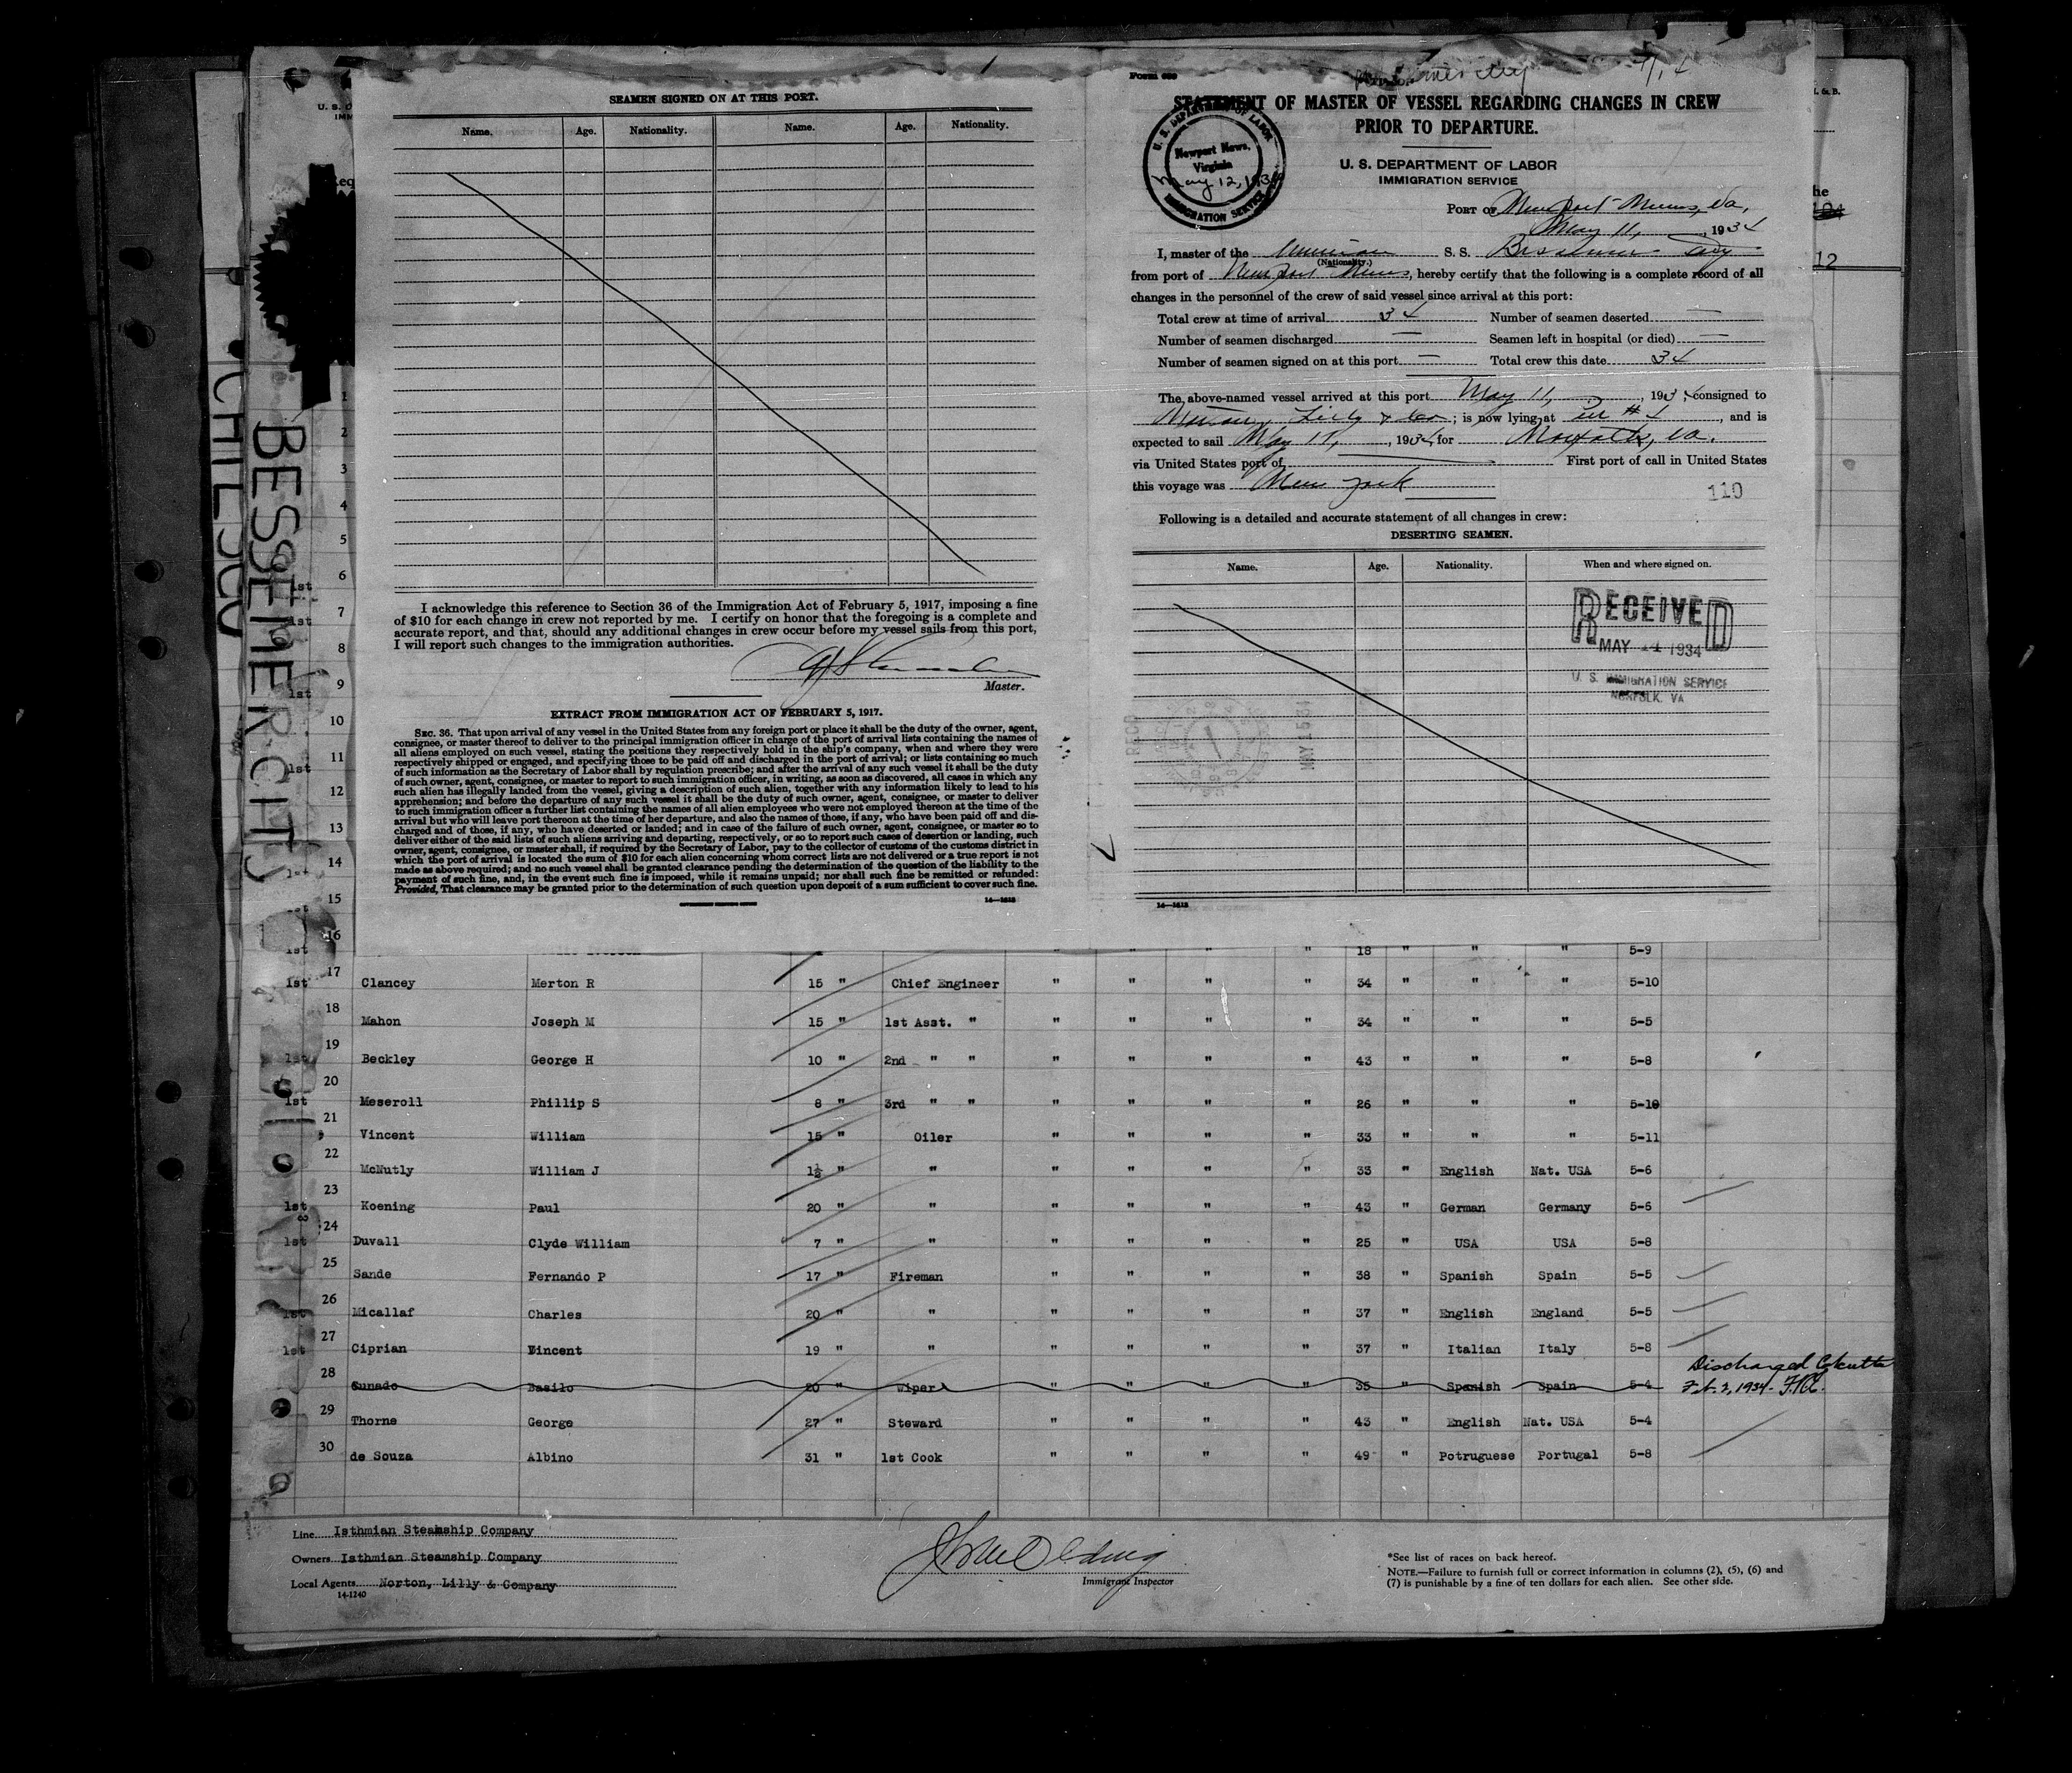 SEAMEN SIGNED ON AT THIS PORT.
Name. Age. Nationality. Name. Age. Nationality.
I acknowledge this reference to Section 36 of the Immigration Act of February 5, 1917, imposing a fine
of $10 for each change in crew not reported by me. I certify on honor that the foregoing is a complete and
accurate report, and that, should any additional changes in crew occur before my vessel sails from this port,
I will report such changes to the immigration authorities.
Master.
EXTRACT FROM IMMIGRATION ACT OF FEBRUARY 5, 1917.
SEC. 36. That upon arrival of any vessel in the United States from any foreign port or place it shall be the duty of the owner, agent,
consignee, or master thereof to deliver to the principal immigration officer in charge of the port of arrival lists containing the names of
all aliens employed on such vessel, stating the positions they respectively hold in the ship's company, when and where they were
respectively shipped or engaged, and specifying those to be paid off and discharged in the port of arrival; or lists containing so much
of such information as the Secretary of Labor shall by regulation prescribe; and after the arrival of any such vessel it shall be the duty
of such owner, agent, consignee, or master to report to such immigration officer, in writing, as soon as discovered, all cases in which any
such alien has illegally landed from the vessel, giving a description of such alien, together with any information likely to lead to his
apprehension; and before the departure of any such vessel it shall be the duty of such owner, agent, consignee, or master to deliver
to such immigration officer a further list containing the names of all alien employees who were not employed thereon at the time of the
arrival but who will leave port thereon at the time of her departure, and also the names of those, if any, who have been paid off and dis-
charged and of those, if any, who have deserted or landed; and in case of the failure of such owner, agent, consignee, or master so to
deliver either of the said lists of such aliens arriving and departing, respectively, or so to report such cases of desertion or landing, such
owner, agent, consignee, or master shall, if required by the Secretary of Labor, pay to the collector of customs of the customs district in
which the port of arrival is located the sum of $10 for each alien concerning whom correct lists are not delivered or a true report is not
made as above required; and no such vessel shall be granted clearance pending the determination of the question of the liability to the
payment of such fine, and, in the event such fine is imposed, while it remains unpaid; nor shall such fine be remitted or refunded:
Provided, That clearance may be granted prior to the determination of such question upon deposit of a sum sufficient to cover such fine.
14—1618
Form 689
STATEMENT OF MASTER OF VESSEL REGARDING CHANGES IN CREW
PRIOR TO DEPARTURE.
U. S. DEPARTMENT OF LABOR
IMMIGRATION SERVICE
U. S. DEPARTMENT OF LABOR
Newport News,
Virginia
May 12, 1934
IMMIGRATION SERVICE
PORT OF Newport News, Va,
May 11, 1934
I, master of the American S. S. Bessemer City
(Nationality.)
from port of Newport News, hereby certify that the following is a complete record of all
changes in the personnel of the crew of said vessel since arrival at this port:
Total crew at time of arrival 34 Number of seamen deserted —
Number of seamen discharged — Seamen left in hospital (or died) —
Number of seamen signed on at this port — Total crew this date 34
The above-named vessel arrived at this port May 11, 1934, consigned to
Norton, Lilly & Co; is now lying at Pier #4, and is
expected to sail May 11, 1934 for Norfolk, Va.
via United States port of First port of call in United States
this voyage was New York
110
Following is a detailed and accurate statement of all changes in crew:
DESERTING SEAMEN.
Name. Age. Nationality. When and where signed on.
RECEIVED
MAY 14 1934
U. S. IMMIGRATION SERVICE
NORFOLK, VA
14—1618
BESSEMER CITY
1
2
3
4
5
1st 6
1st 7
8
1st 9
10
1st 11
12
13
14
15
1st 16 18 " " " 5-9
1st 17 Clancey Merton R 15 " Chief Engineer " " " " 34 " " " 5-10
18 Mahon Joseph M 15 " 1st Asst. " " " " " 34 " " " 5-5
1st 19 Beckley George H 10 " 2nd " " " " " " 43 " " " 5-8
1st 20 Meseroll Phillip S 8 " 3rd " " " " " " 26 " " " 5-10
21 Vincent William 15 " Oiler " " " " 33 " " " 5-11
22 McNutly William J 1½ " " " " " " 33 " English Nat. USA 5-6
1st 23 Koening Paul 20 " " " " " " 43 " German Germany 5-6
1st 24 Duvall Clyde William 7 " " " " " " 25 " USA USA 5-8
25 Sande Fernando P 17 " Fireman " " " " 38 " Spanish Spain 5-5
1st 26 Micallaf Charles 20 " " " " " " 37 " English England 5-5
1st 27 Ciprian Vincent 19 " " " " " " 37 " Italian Italy 5-8
28 Gunado Basilo 20 " Wiper " " " " 35 " Spanish Spain 5-4 Discharged Calcutta
Feb. 3, 1934.
29 Thorne George 27 " Steward " " " " 43 " English Nat. USA 5-4
30 de Souza Albino 31 " 1st Cook " " " " 49 " Potruguese Portugal 5-8
Line Isthmian Steamship Company
Owners Isthmian Steamship Company
Local Agents Norton, Lilly & Company
14-1240
Immigrant Inspector
*See list of races on back hereof.
NOTE.—Failure to furnish full or correct information in columns (2), (5), (6) and
(7) is punishable by a fine of ten dollars for each alien. See other side.